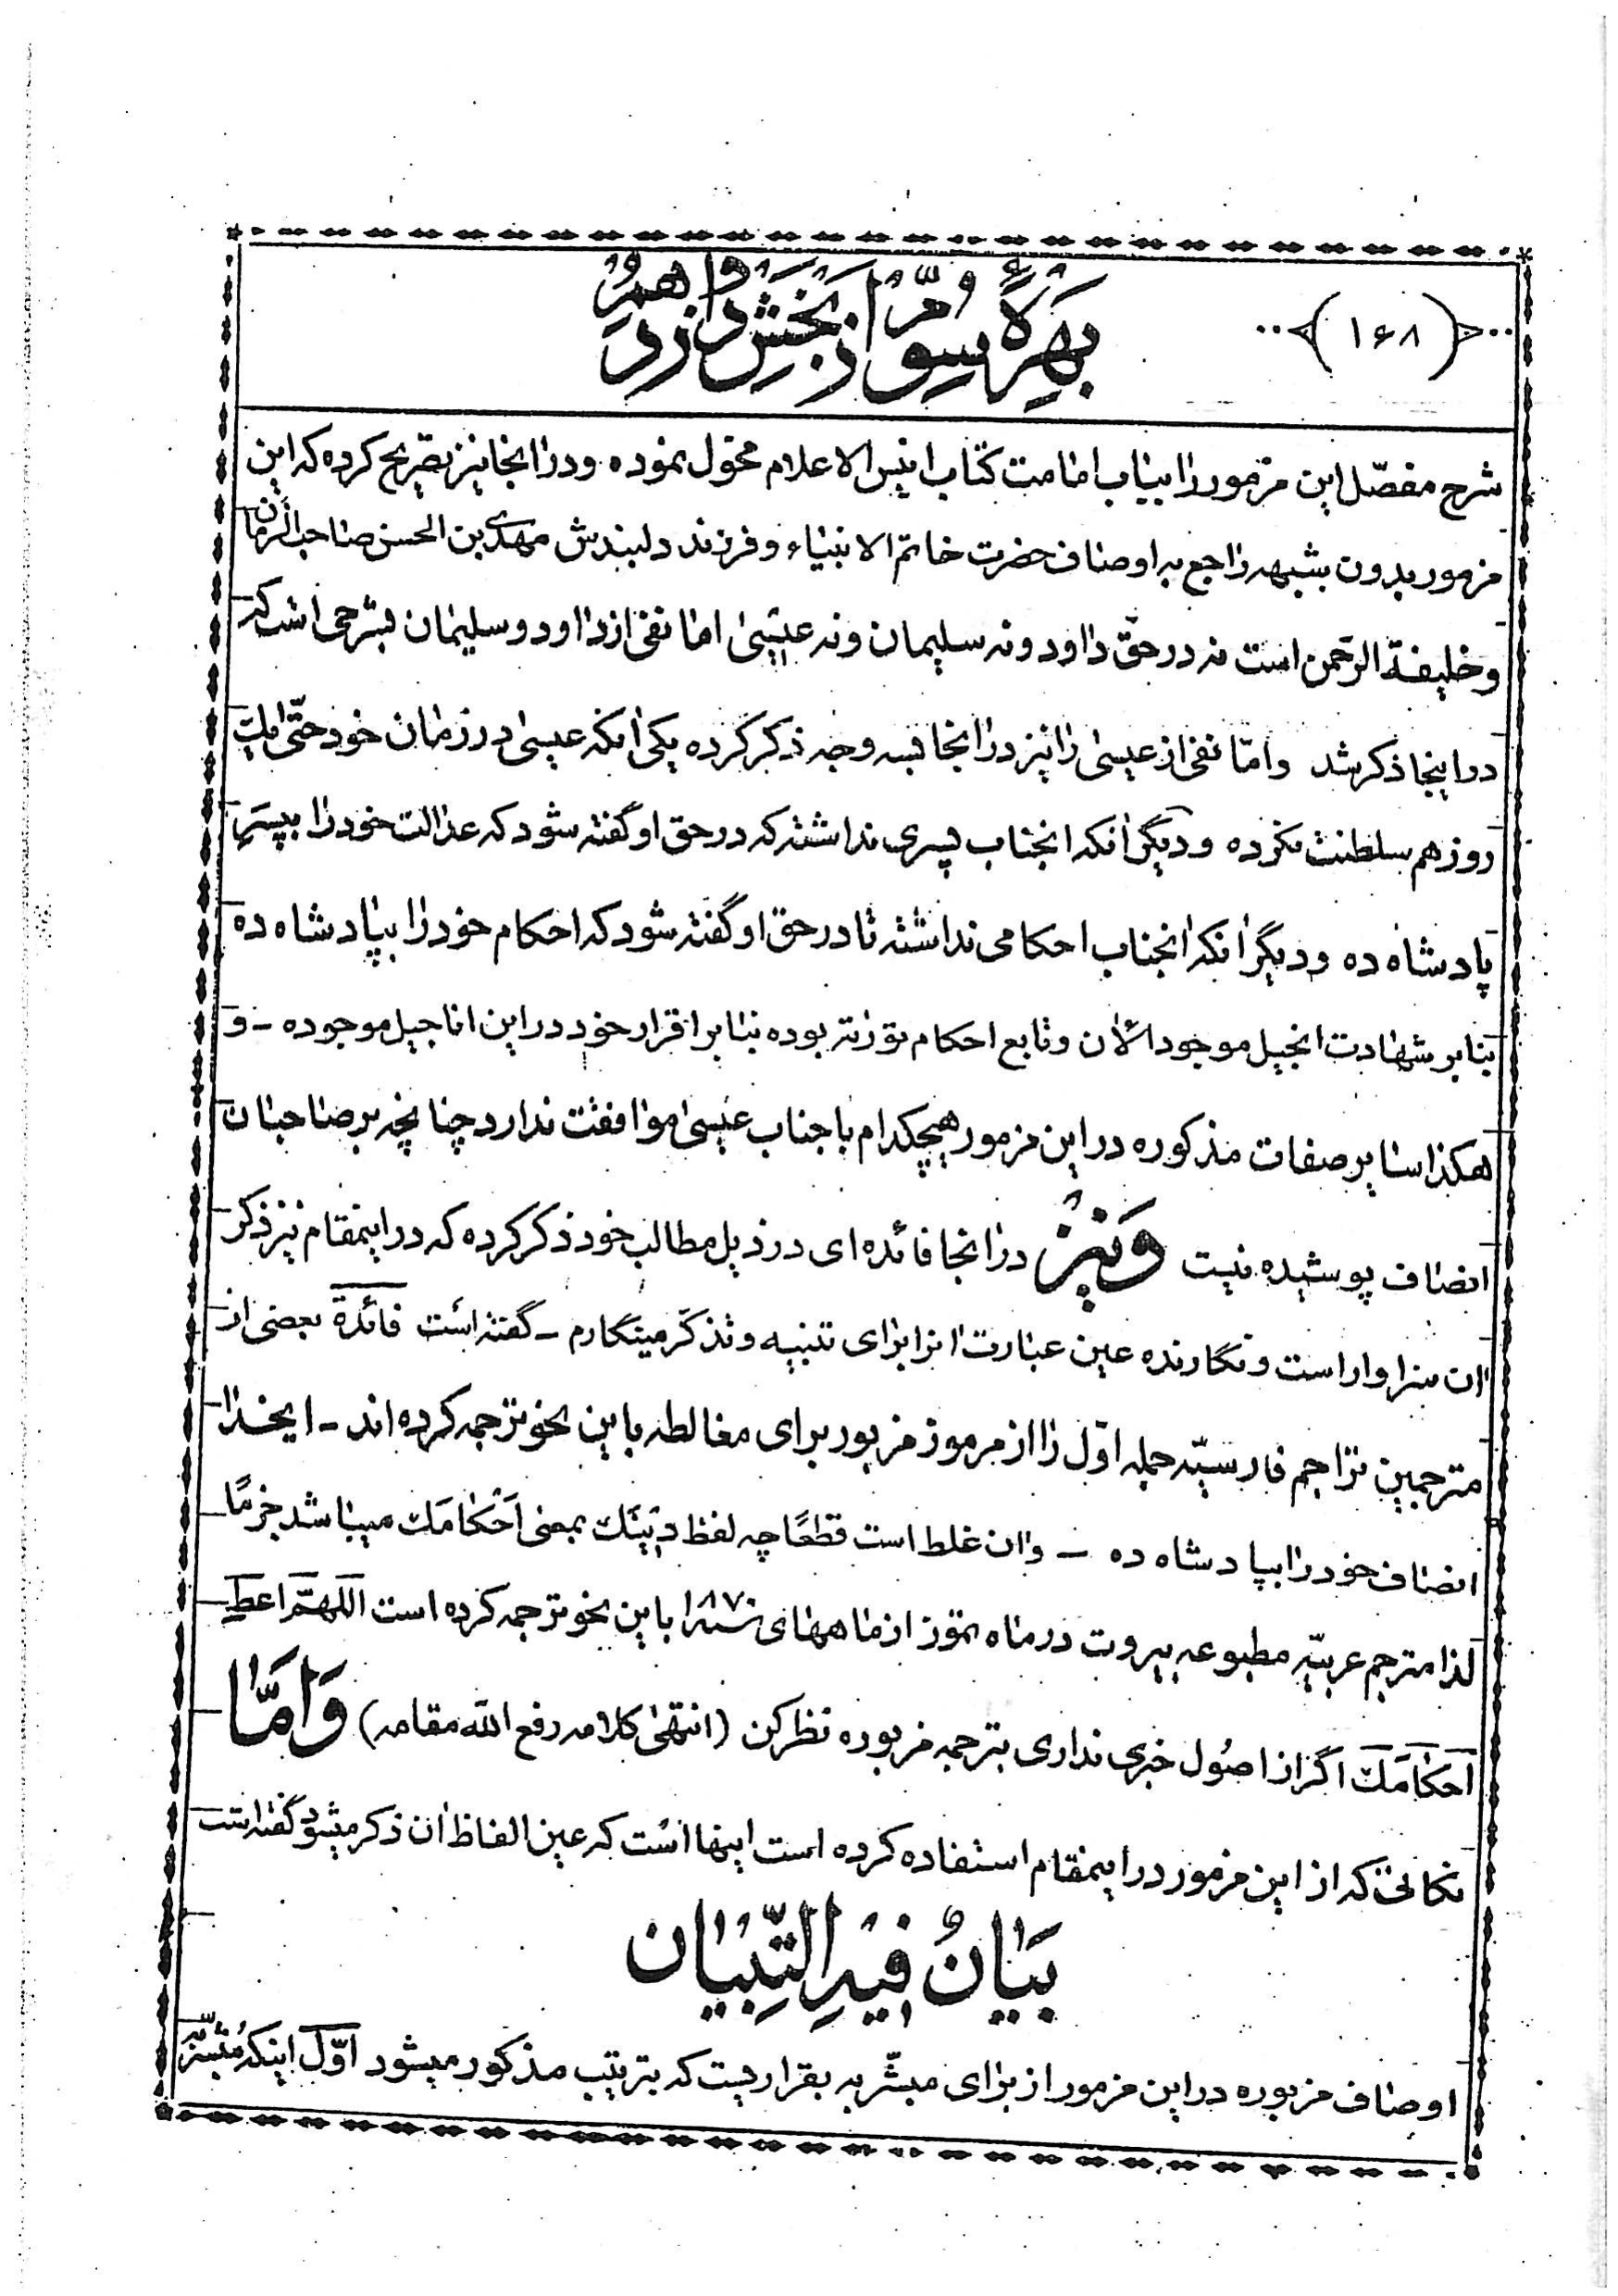 (۱۶۸)
بهرهٔ سوّم از بخش دوازدهم
شرح مفصّل این مزمور را بباب امامت کتاب انیس الاعلام محوّل نموده و در انجا نیز تصریح کرده که این
مزمور بدون شبهه راجع به اوصاف حضرت خاتم الانبیاء و فرزند دلبندش مهدی بن الحسن صاحب الزمان
و خلیفة الرّحمن است نه در حقّ داود و نه سلیمان و نه عیسیٰ اما نفی از داود و سلیمان بشرحی است که
در اینجا ذکر شد و امّا نفی از عیسیٰ را نیز در انجا بسه وجه ذکر کرده یکی انکه عیسیٰ در زمان خود حتّی یک
روز هم سلطنت نکرده و دیگر انکه انجناب پسری نداشته که در حق او گفته شود که عدالت خود را بپسر
پادشاه ده و دیگر انکه انجناب احکامی نداشته تا در حق او گفته شود که احکام خود را بپادشاه ده
بنابر شهادت انجیل موجود الان و تابع احکام توریة بوده بنابر اقرار خود در این اناجیل موجوده - و
هکذا سایر صفات مذکوره در این مزمور هیچکدام با جناب عیسیٰ موافقت ندارد چنانچه بر صاحبان
انصاف پوشیده نیست وَنیز در انجا فائده ای در ذیل مطالب خود ذکر کرده که در اینمقام نیز ذکر
ان سزاوار است و نگارنده عین عبارت انرا برای تنبیه و تذکّر مینگارم - گفته است فائدة بعضی از
مترجمین تراجم فارسیّه جمله اوّل را از مرموز مزبور برای مغالطه باین نحو ترجمه کرده اند - ایخدا
انصاف خود را بپادشاه ده - و ان غلط است قطعًا چه لفظ دینک بمعنی اَحْکامَک میباشد جزمًا
لذا مترجم عربیّه مطبوعه بیروت در ماه تموز از ماههای سنه ۱۸۷۰ باین نحو ترجمه کرده است اللّهمّ اعطِ
اَحکامَکَ اگر از اصول خبری نداری بترجمه مزبوره نظر کن (انتهیٰ کلامه رفع الله مقامه) وَامَّا
نکاتی که از این مزمور در اینمقام استفاده کرده است اینها است که عین الفاظ ان ذکر میشود گفته است
بَیَانٌ فیهِ التِّبیَان
اوصاف مزبوره در این مزمور از برای مبشّر به بقراریست که بترتیب مذکور میشود اوّل اینکه مُبَشّر